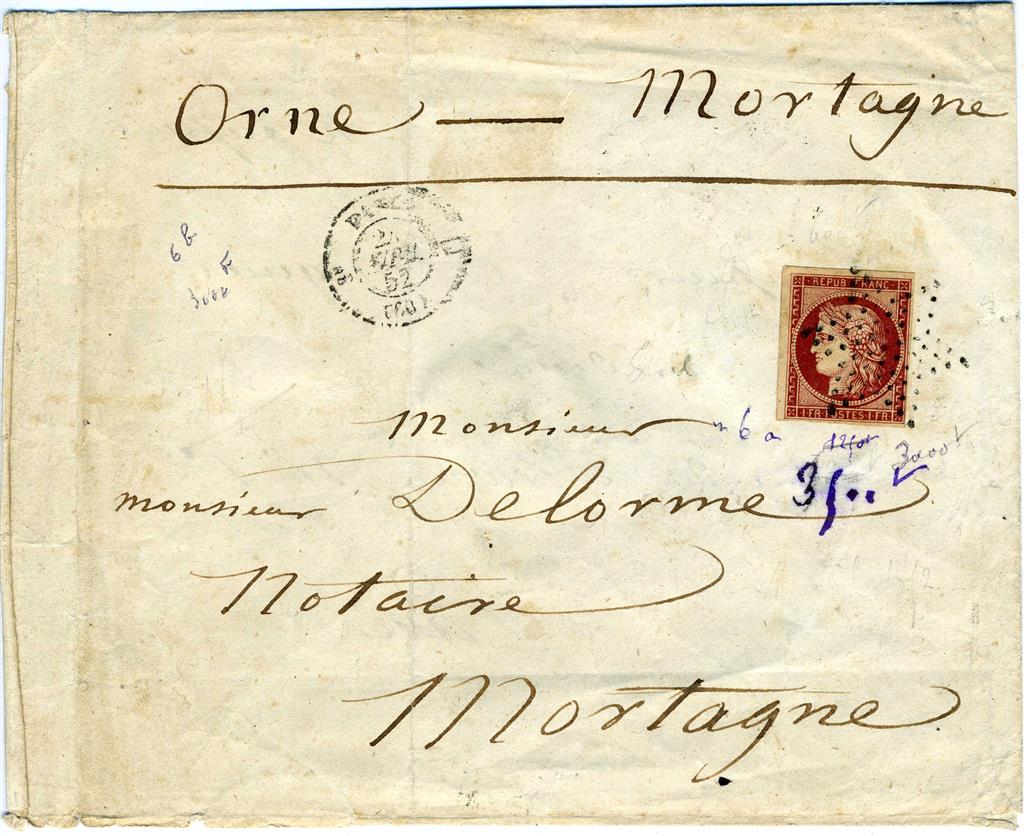 Orne — Mortagne
PARIS
AVRIL
52
(60)
6 b
3000 F
REPUB FRANC
1 FR POSTES 1 FR
Monsieur
6 a
3000
monsieur Delorme
35··
Notaire
Mortagne